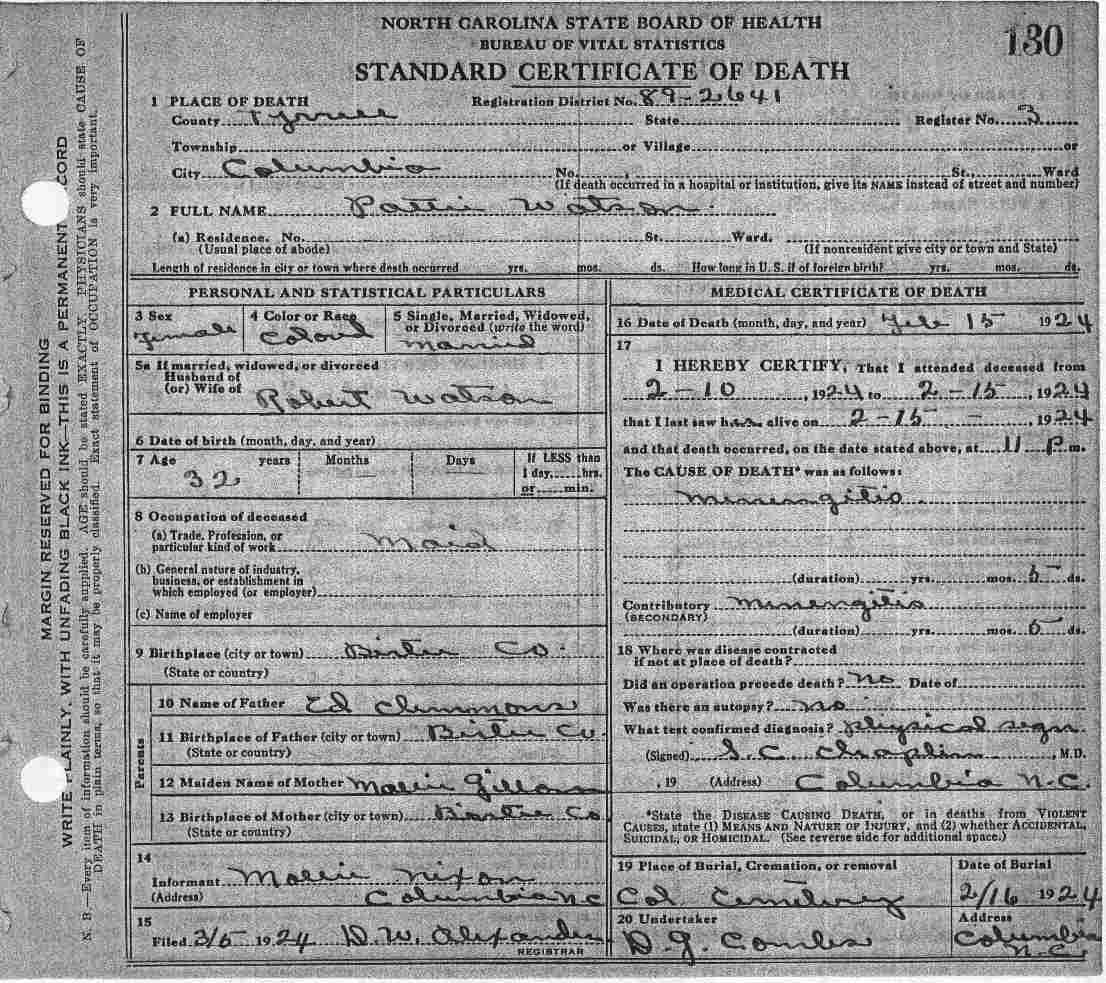 NORTH CAROLINA STATE BOARD OF HEALTH
BUREAU OF VITAL STATISTICS
130
STANDARD CERTIFICATE OF DEATH
1 PLACE OF DEATH Registration District No. 89-2641
County Tyrrell State Register No. 3
Township or Village or
City Columbia No. , St., Ward
(If death occurred in a hospital or institution, give its NAME instead of street and number)
2 FULL NAME Pattie Watson
(a) Residence. No. St. Ward.
(Usual place of abode) (If nonresident give city or town and State)
Length of residence in city or town where death occurred yrs. mos. ds. How long in U. S. if of foreign birth? yrs. mos. ds.
PERSONAL AND STATISTICAL PARTICULARS
3 Sex
Female
4 Color or Race
Colord
5 Single, Married, Widowed,
or Divorced (write the word)
Married
5a If married, widowed, or divorced
Husband of
(or) Wife of Robert Watson
6 Date of birth (month, day, and year)
7 Age years Months Days
32
If LESS than
1 day, hrs.
or min.
8 Occupation of deceased
(a) Trade, Profession, or
particular kind of work Maid
(b) General nature of industry,
business, or establishment in
which employed (or employer)
(c) Name of employer
9 Birthplace (city or town) Birtie Co.
(State or country)
Parents
10 Name of Father Ed Clemmons
11 Birthplace of Father (city or town) Birtie Co.
(State or country)
12 Maiden Name of Mother Mollie Gillam
13 Birthplace of Mother (city or town) Birtie Co
(State or country)
14
Informant Mollie Nixon
(Address) Columbia N C
15
Filed 3/5 1924 D. W. Alexander
REGISTRAR
MEDICAL CERTIFICATE OF DEATH
16 Date of Death (month, day, and year) Feb 15 1924
17
I HEREBY CERTIFY, That I attended deceased from
2-10 , 1924 to 2-15 , 1924
that I last saw her alive on 2-15 , 1924
and that death occurred, on the date stated above, at 11 P. m.
The CAUSE OF DEATH* was as follows:
Minengitis
(duration) yrs. mos. 5 ds.
Contributory Minengitis
(SECONDARY)
(duration) yrs. mos. 5 ds.
18 Where was disease contracted
if not at place of death?
Did an operation precede death? No Date of
Was there an autopsy? no
What test confirmed diagnosis? physical sign
(Signed) S. C. Chaplin , M.D.
, 19 (Address) Columbia N.C.
*State the DISEASE CAUSING DEATH, or in deaths from VIOLENT
CAUSES, state (1) MEANS AND NATURE OF INJURY, and (2) whether ACCIDENTAL,
SUICIDAL, OR HOMICIDAL. (See reverse side for additional space.)
19 Place of Burial, Cremation, or removal
Col. Cemetery
Date of Burial
2/16 1924
20 Undertaker
D. J. Combs
Address
Columbia
N.C.
MARGIN RESERVED FOR BINDING
WRITE PLAINLY, WITH UNFADING BLACK INK—THIS IS A PERMANENT CORD
N. B.—Every item of information should be carefully supplied. AGE should be stated EXACTLY. PHYSICIANS should state CAUSE OF
DEATH in plain terms, so that it may be properly classified. Exact statement of OCCUPATION is very important.